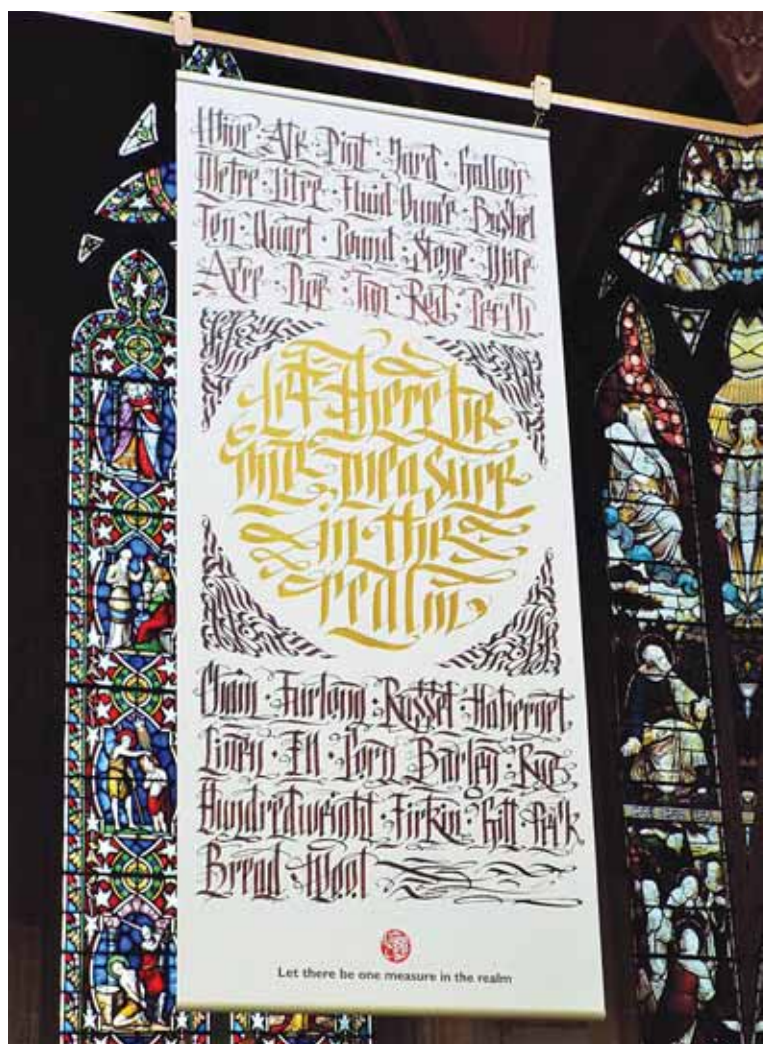 Wine · Ale · Pint · Yard · Gallon
Metre · Litre · Fluid Ounce · Bushel
Ton · Quart · Pound · Stone · Mile
Acre · Pipe · Tun · Rod · Perch
Let There be
one measure
in the
realm
Chain · Furlong · Russet · Haberget
Linen · Ell · Corn Barley · Rye
Hundredweight · Firkin · Gill · Peck
Bread · Wool
Let there be one measure in the realm